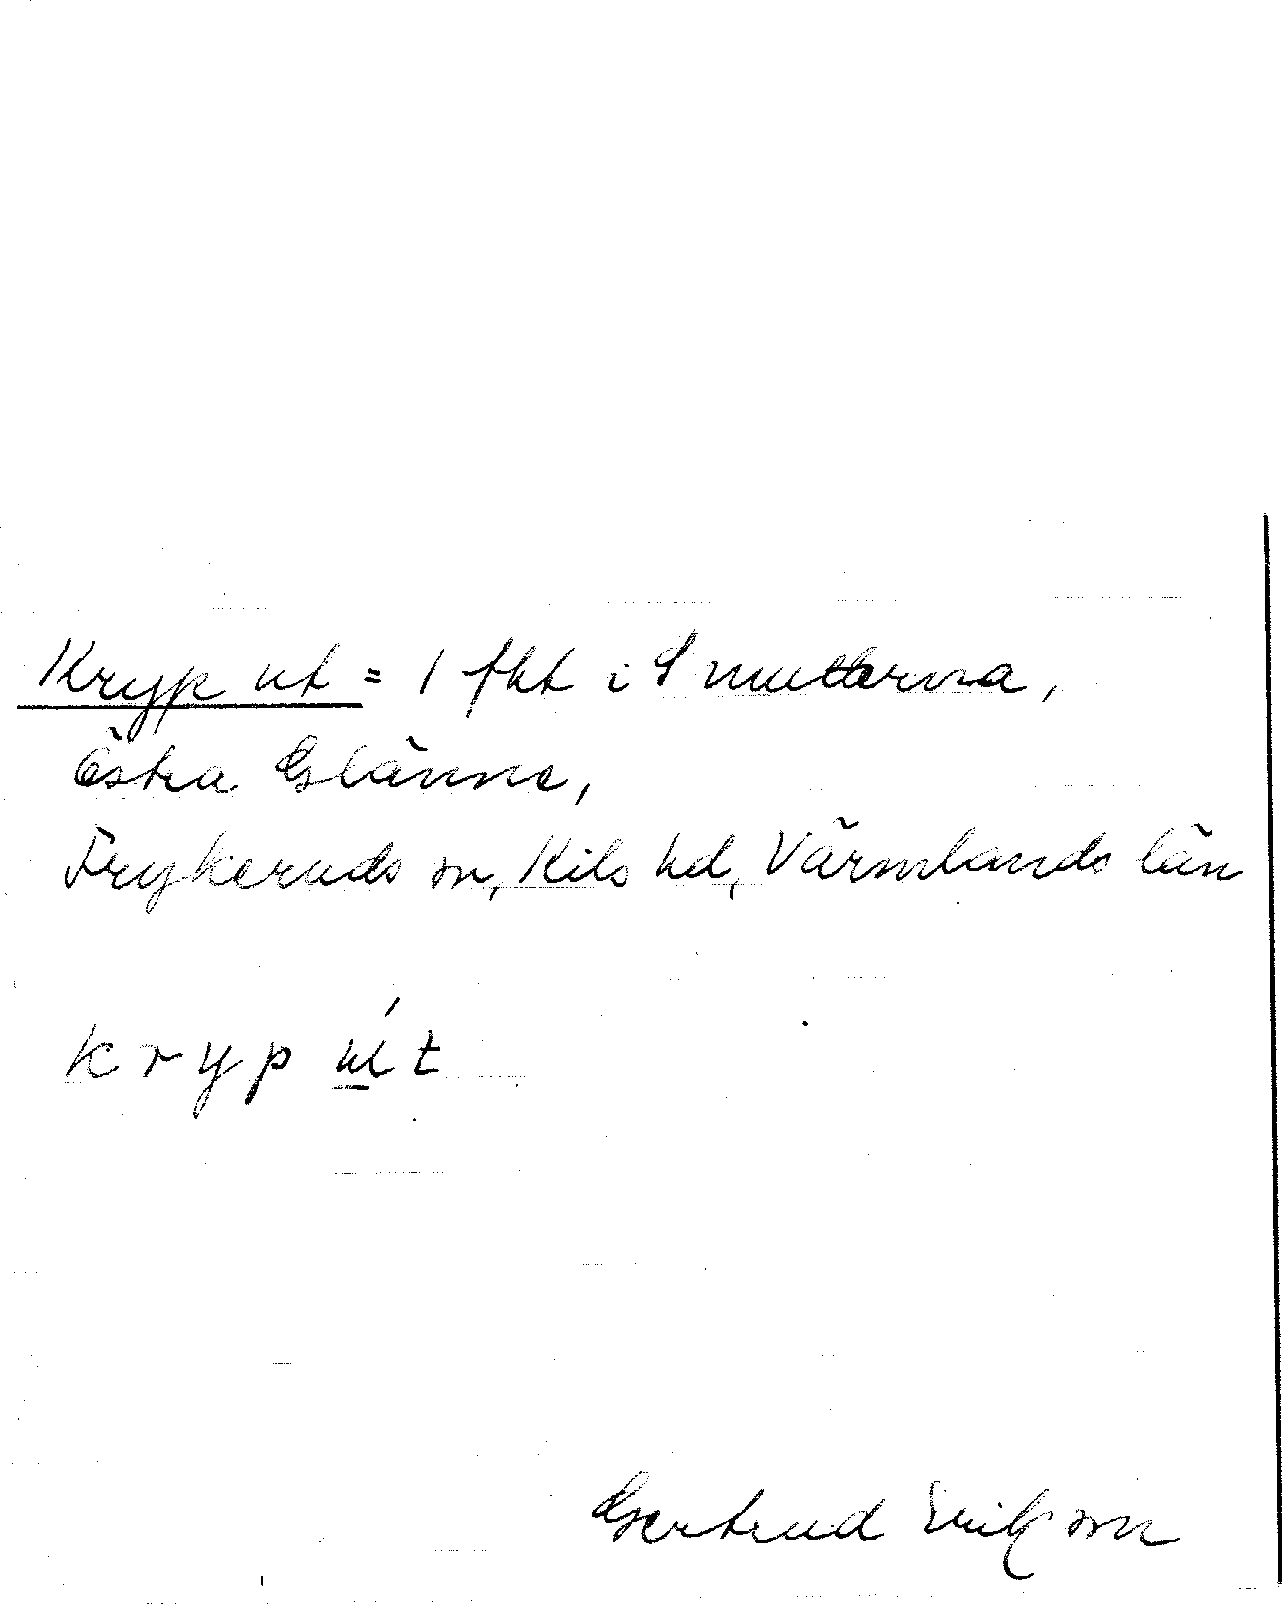 Kryp ut = 1 fht i Smutterna,
Östra Glänne,
Frykeruds sn, Kils hd, Värmlands län
kryp út
Gertrud Erikson